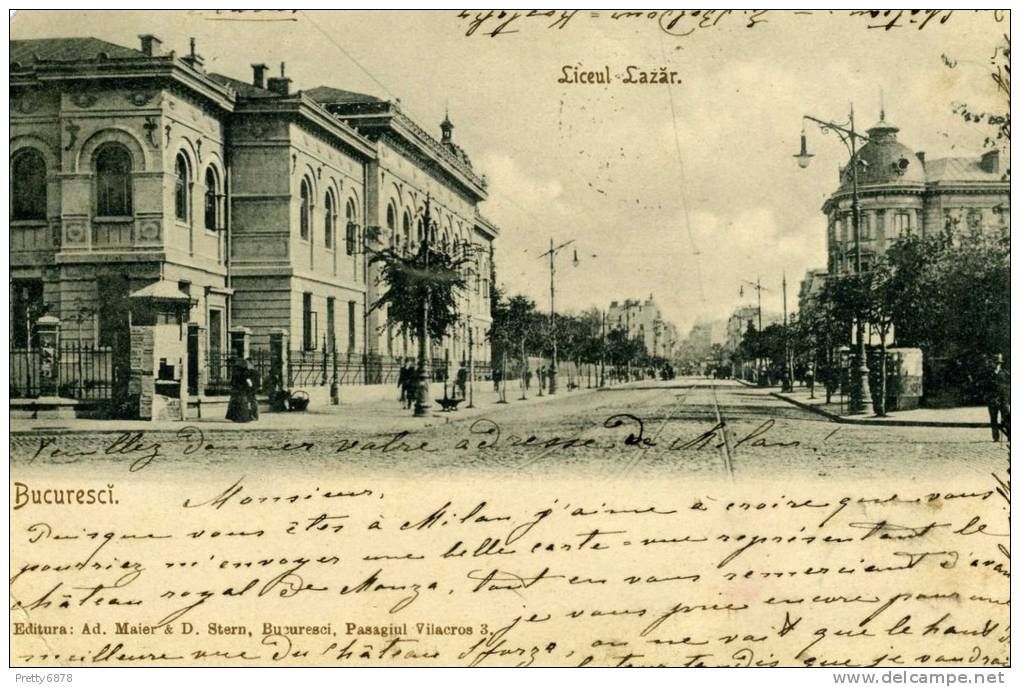 Liceul Lazăr.
Veuillez donner votre adresse de Milan!
Bucuresci.
Monsieur,
Puisque vous êtes à Milan j'aime à croire que vous
pourriez m'envoyer une belle carte-vue représentant le
château royal de Monza, tout en vous remerciant d'avan
je vous prie encore pour une
Editura: Ad. Maier & D. Stern, Bucuresci, Pasagiul Vilacros 3.
meilleure vue du Château Sforza, on ne voit que le haut
tandis que je voudrai
Pretty6878
www.delcampe.net